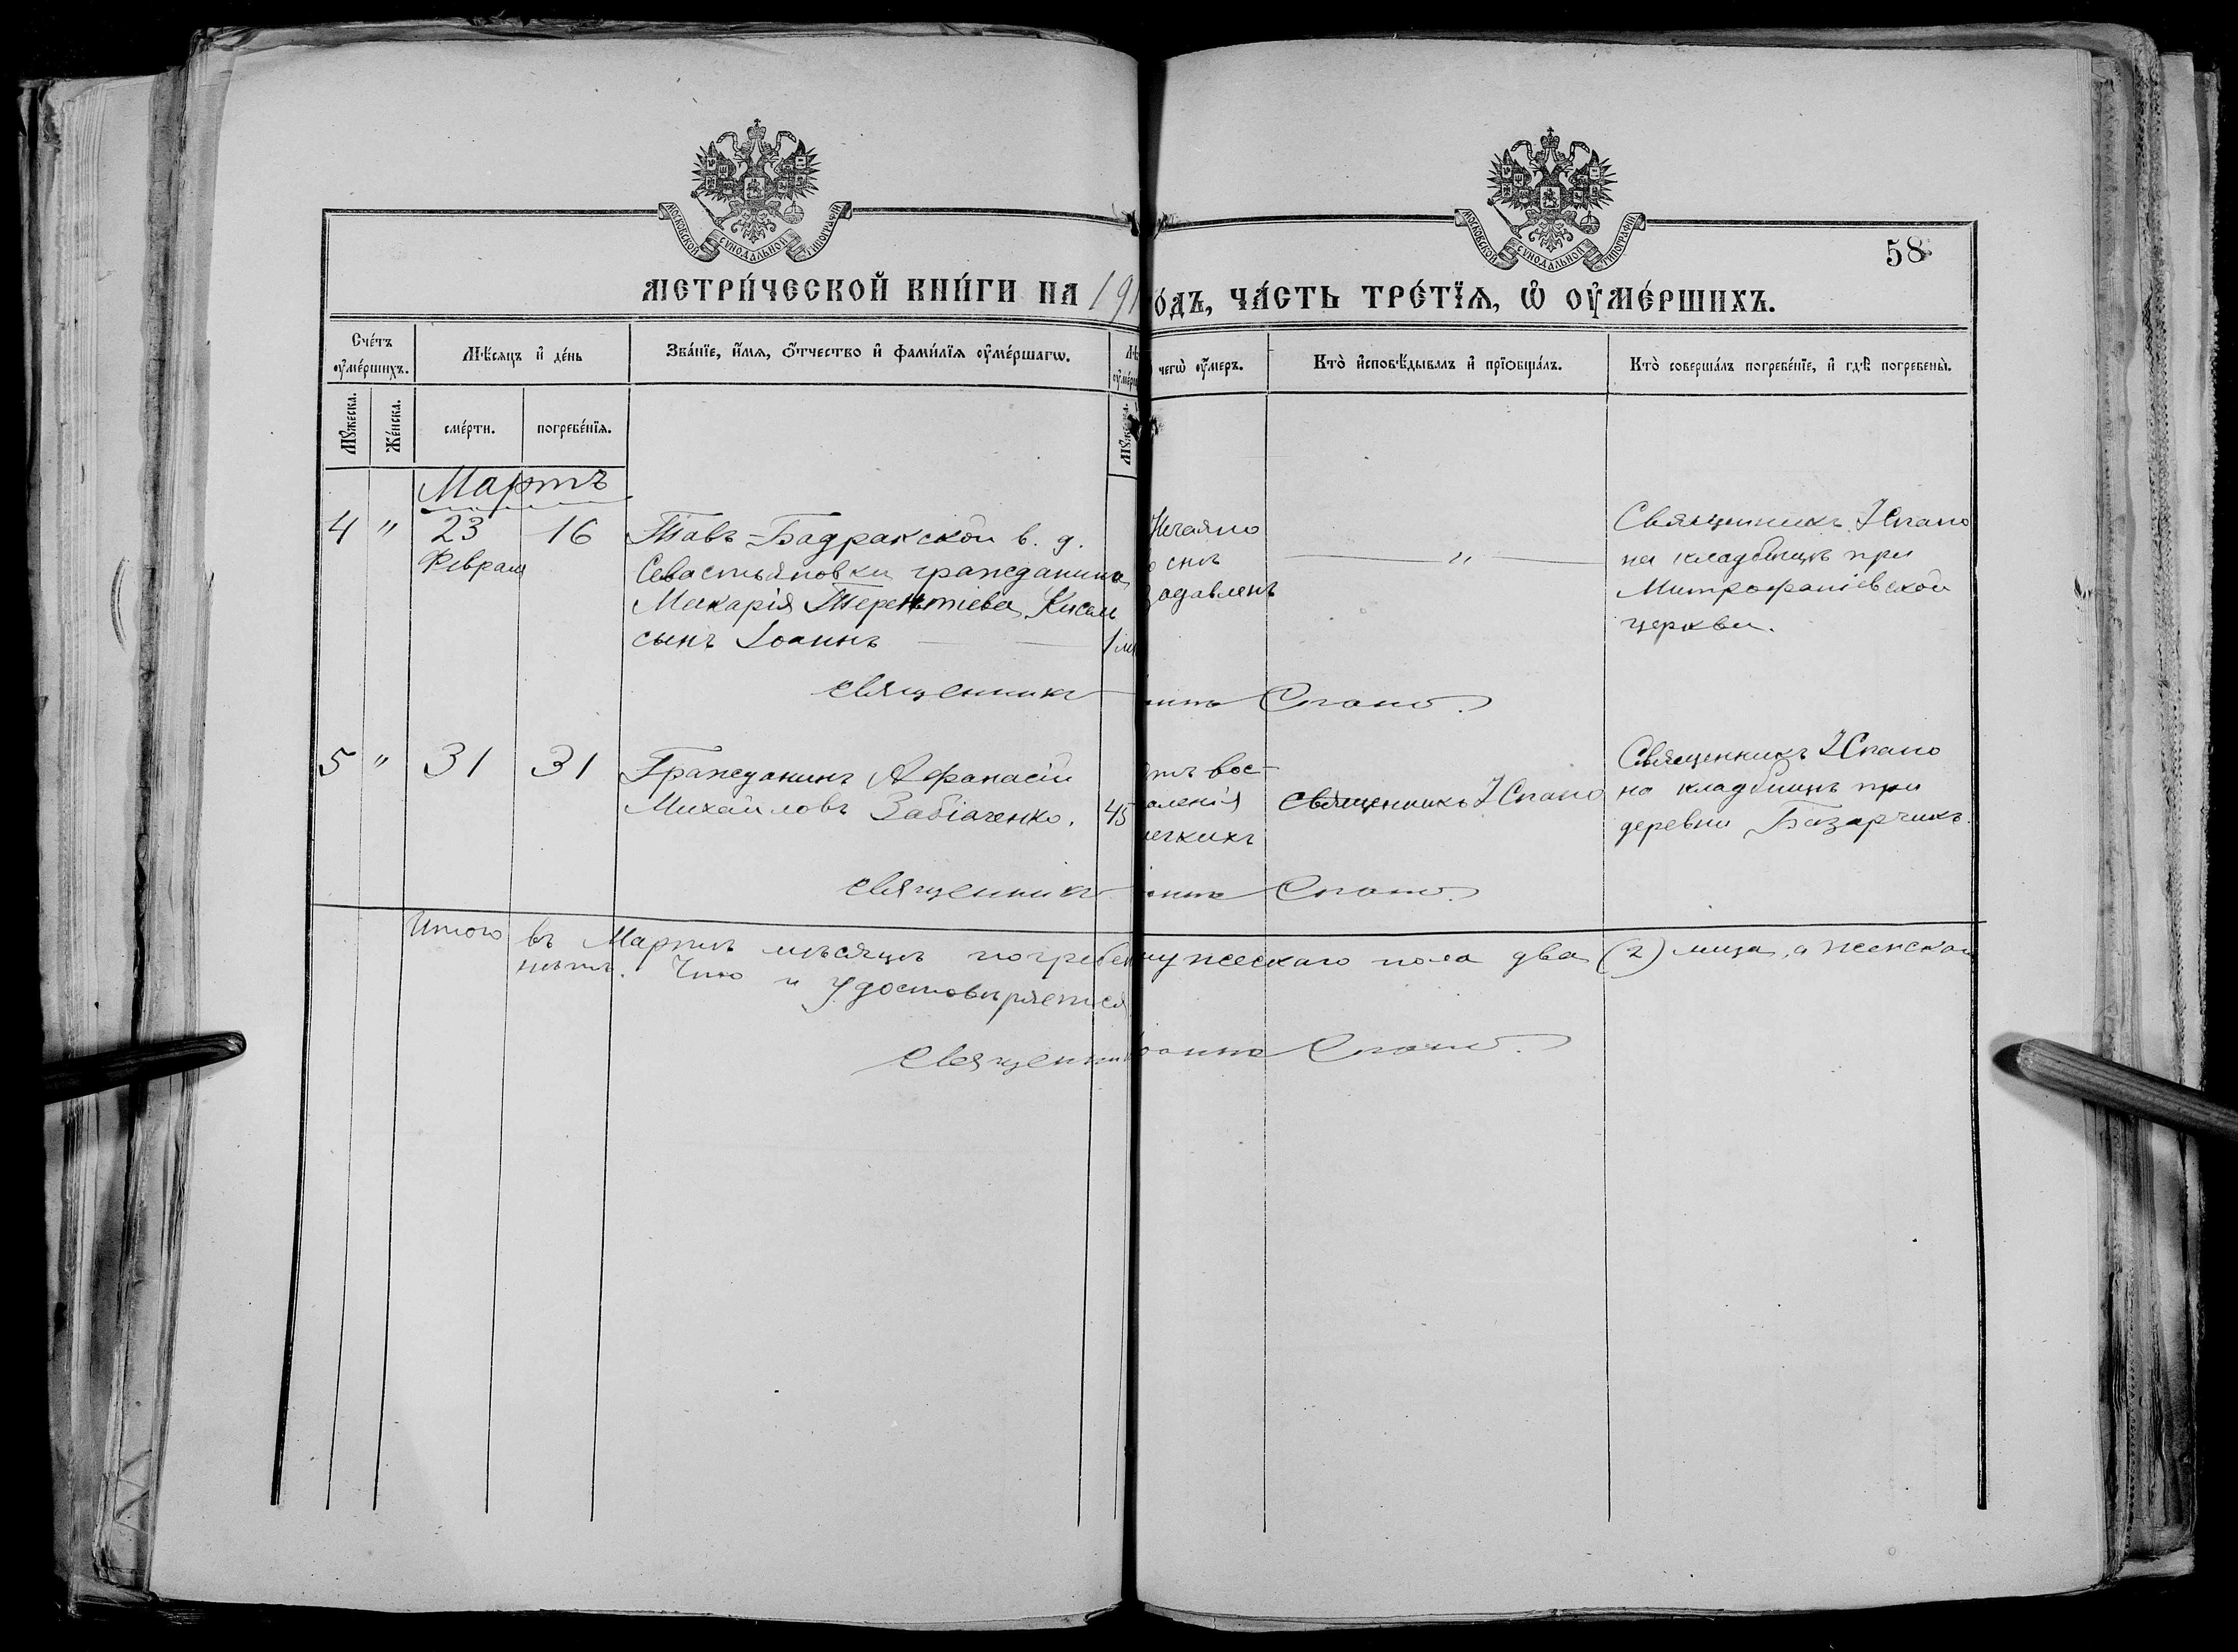 МОСКОВСКОЙ СУНОДАЛЬНОЙ ТИПОГРАФІИ
МОСКОВСКОЙ СУНОДАЛЬНОЙ ТИПОГРАФІИ
58
МЕТРИ́ЧЕСКОЙ КНИ́ГИ НА 191
О́ДЪ, ЧА́СТЬ ТРЕ́ТЇѦ, Ѽ ОУ҆МЕ́РШИХЪ.
Сче́тъ оу҆ме́ршихъ.
Мѣ́сяцъ и҆ де́нь
Зва́нїе, и҆́мѧ, ѻ҆́тчество и҆ фами́лїѧ оу҆ме́ршагѡ.
Лѣ
оу҆мерш
чегѡ̀ оу҆́меръ.
Кто̀ и҆сповѣ́дывалъ и҆ прїѡбща́лъ.
Кто̀ соверша́лъ погребе́нїе, и҆ гдѣ̀ погребены̀.
Мꙋ́жеска.
Же́нска.
сме́рти.
погребе́нїѧ.
Мꙋ́жеска.
Мартъ
4 " 23 16 Тавъ-Бадракской в. д.
Феврал
Севастьяновки гражданина
Макарія Терентіева
сынъ Іоаннъ 1 м
Нечаяно
снѣ
задавленъ
"
Священникъ І Спано
на кладбищѣ при
Митрофаніевской
церкви.
священникъ аннъ Спано.
5 " 31 31 Гражданинъ Афанасій
Михайловъ Забіаченко. 45
отъ вос-
аленія
легкихъ
Священникъ І Спано
Священникъ І Спано
на кладбищѣ при
деревни Базарчикъ.
священникъ аннъ Спано.
Итого въ Мартѣ мѣсяцѣ погребен мужескаго пола два (2) лица, а женскаго
нѣтъ. Что и удостовѣряется
Священни оаннъ Спано.